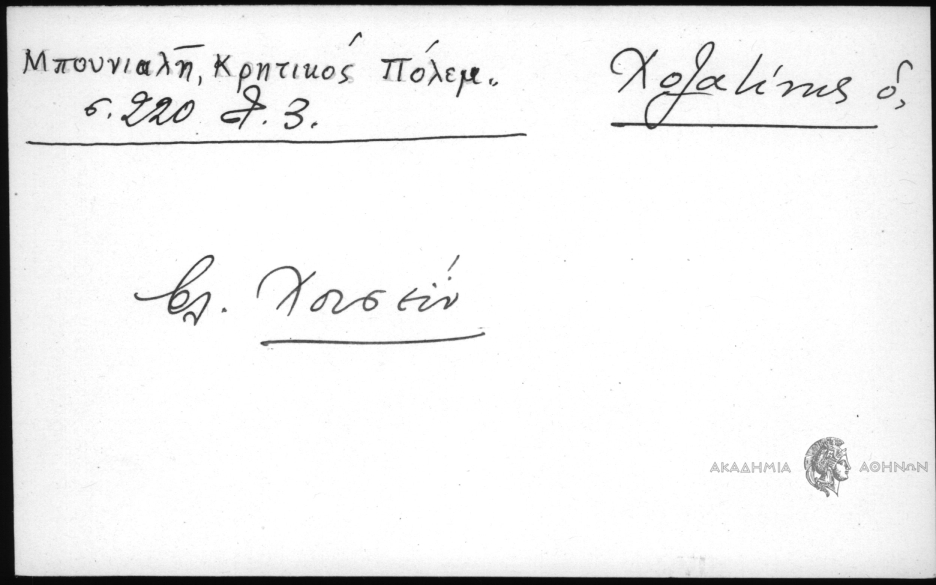 Μπουνιαλῆ, Κρητικός Πόλεμ.
σ. 220 στ. 3.
Χοζατίνης ὁ,
βλ. Χουσεΐν
ΑΚΑΔΗΜΙΑ ΑΘΗΝΩΝ